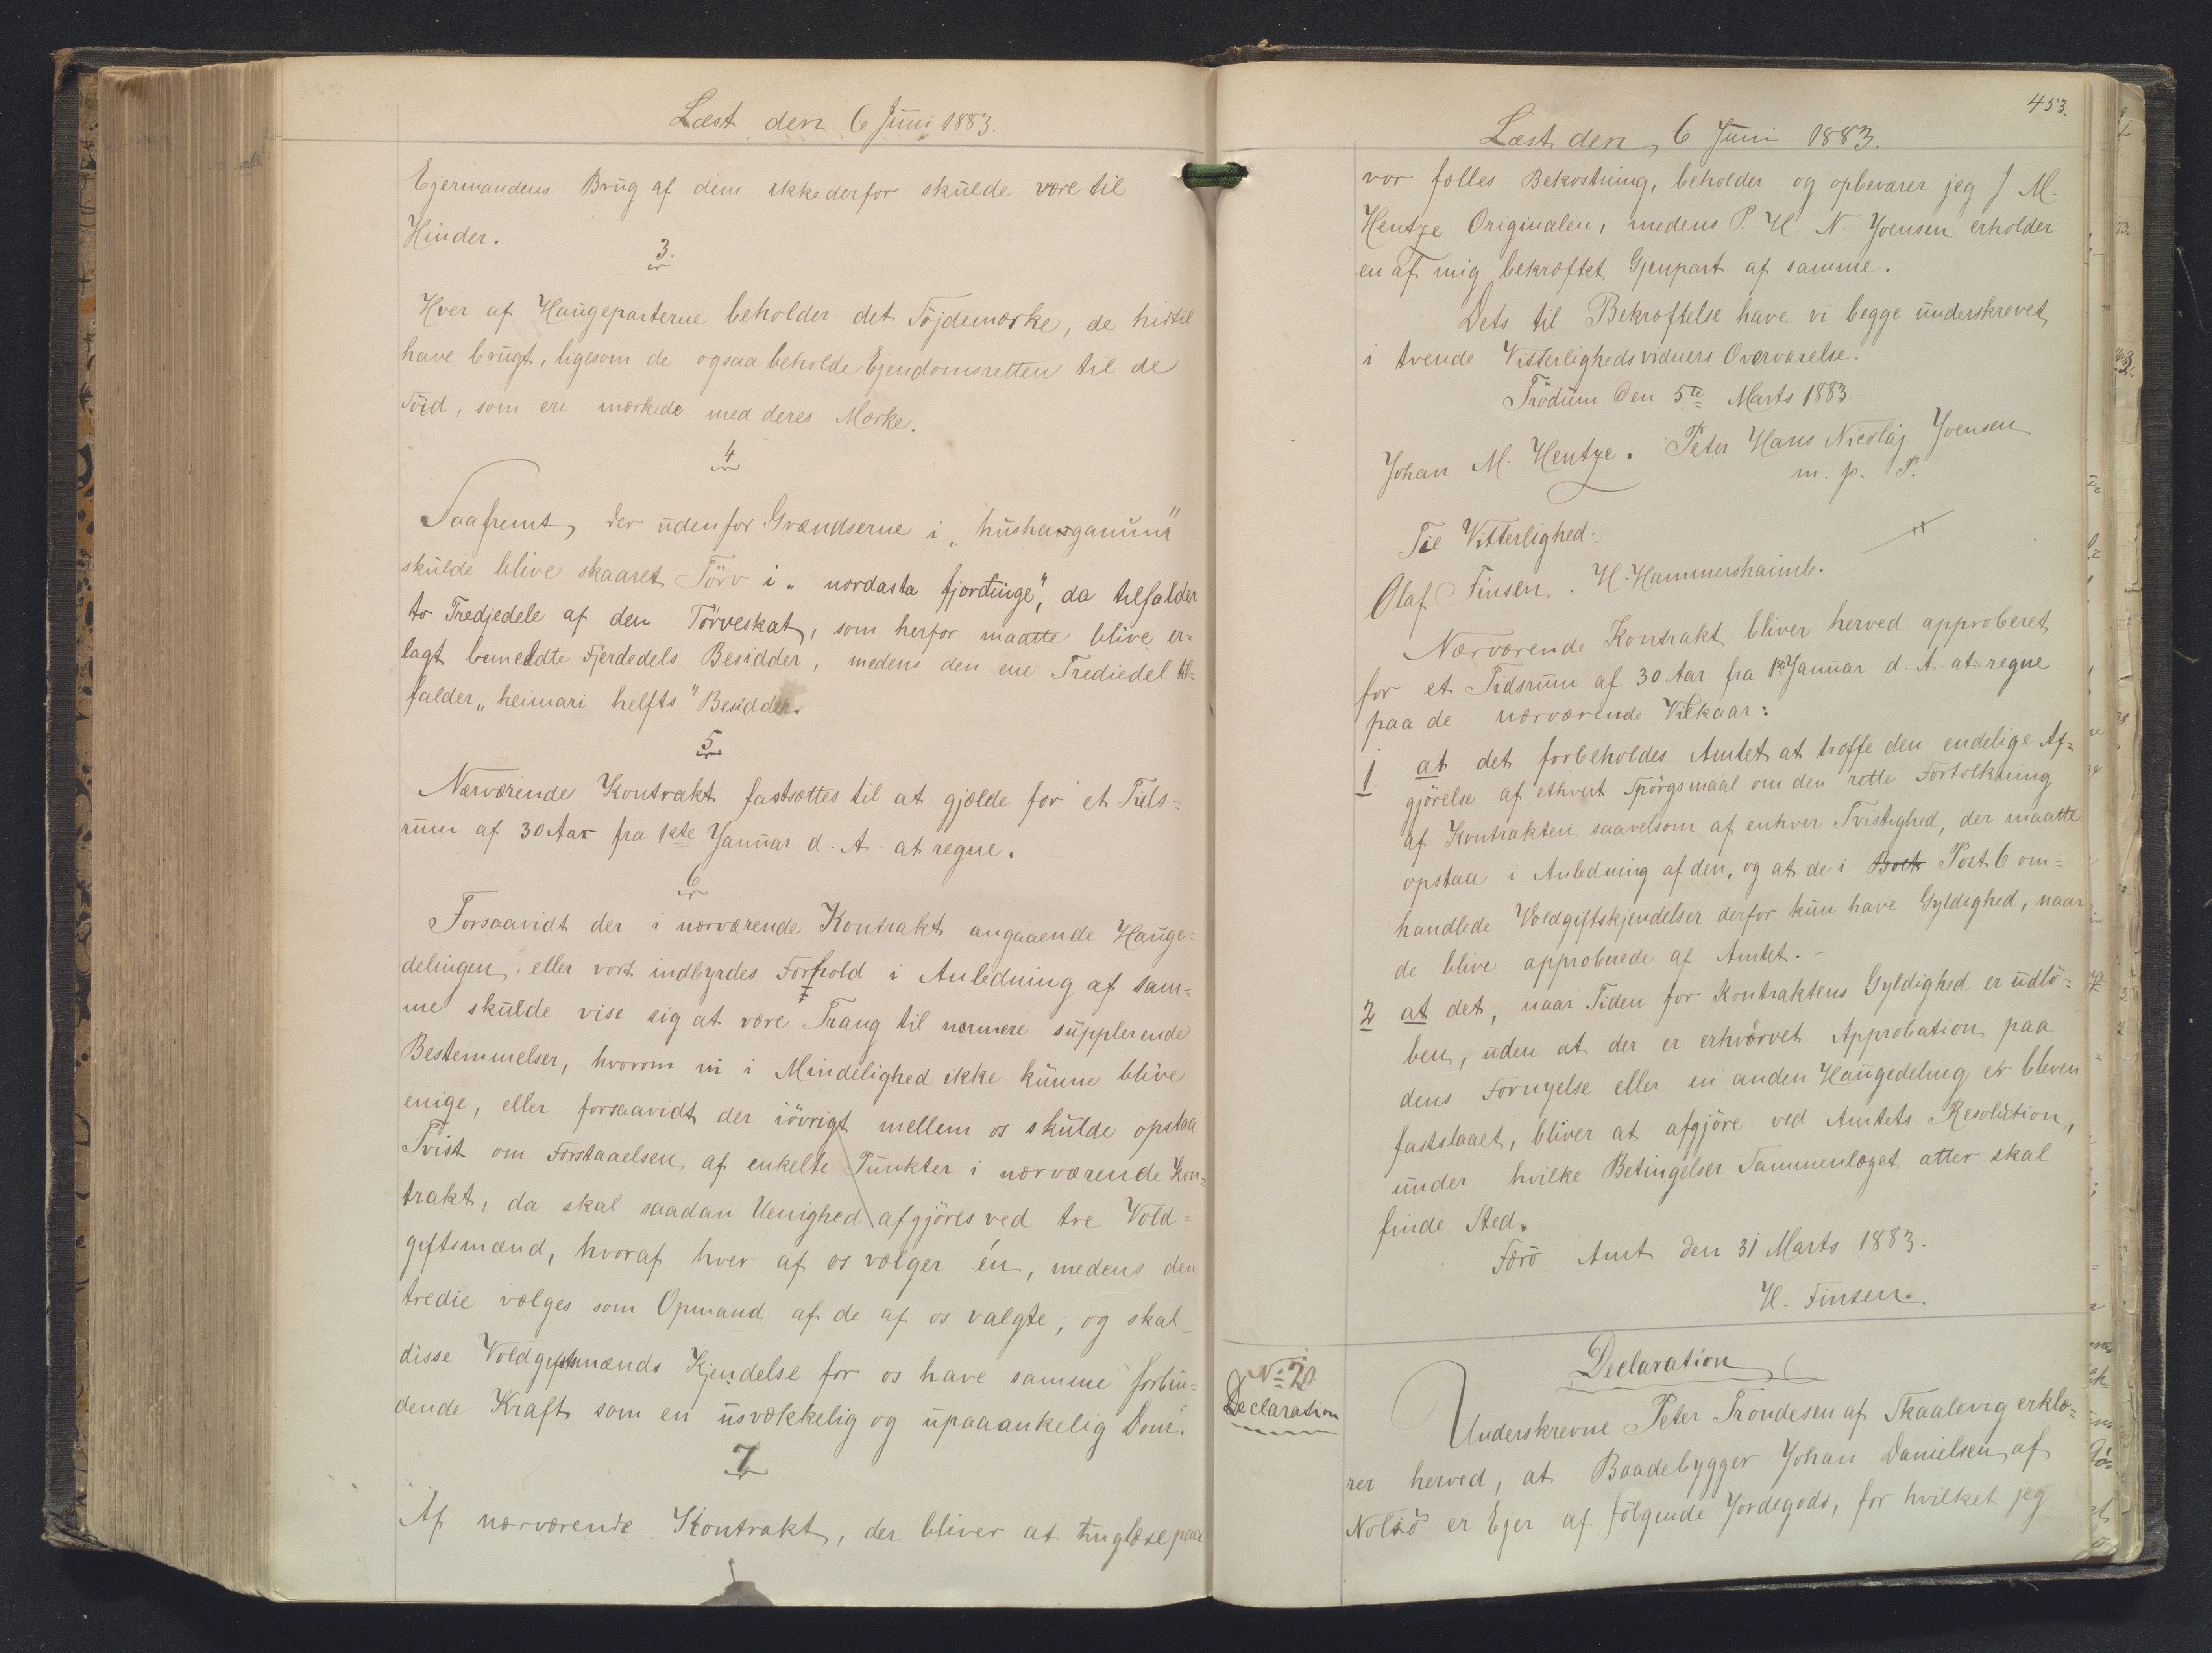 Læst den 6 Juni 1883.
Ejermandens Brug af dem ikke derfor skulde være til
Hinder.
3.
Hver af Haugeparterne beholder det Söjdemærke, de hidtil
have brugt, ligesom de ogsaa beholde Ejendomsretten til de
Söid, som ere mærkede med deres Mærke.
4
Saafremt, der udenfor Grændserne i "húshauganum"
skulde blive skaaret Törv i "nordasta fjordinge", da tilfalder
to Tredjedele af den Törveskat, som herfor maatte blive er=
lagt bemeldte Fjerdedels Besidder, medens den ene Trediedel til=
falder "heimari helfts" Besidder.
5
Nærværende Kontrakt fastsættes til at gjælde for et Tids=
rum af 30 Aar fra 1ste Januar d. A. at regne.
6
Forsaavidt der i nærværende Kontrakt angaaende Hauge=
delingen, eller vort indbyrdes Forhold i Anledning af sam=
me skulde vise sig at være Trang til nærmere supplerende
Bestemmelser, hvorom vi i Mindelighed ikke kunne blive
enige, eller forsaavidt der iövrigt mellem os skulde opstaa
Tvist om Forstaaelsen af enkelte Punkter i nærværende Kon=
trakt, da skal saadan Uenighed afgjöres ved tre Vold=
giftsmænd, hvoraf hver af os vælger én, medens den
tredie vælges som Opmand af de af os valgte, og skal
disse Voldgiftsmænds Kjendelse for os have samme forbin=
dende Kraft som en usvækkelig og upaaankelig Dom.
7
Af nærværende Kontrakt, der bliver at tinglæse paa
453.
Læst den 6 Juni 1883.
vor fælles Bekostning, beholder og opbevarer jeg J. M.
Hentze Originalen, medens P. H. N. Joensen erholder
en af mig bekræftet Gjenpart af samme.
Dets til Bekræftelse have vi begge underskrevet
i tvende Vitterlighedsvidners Overværelse.
Trödum den 5te Marts 1883.
Johan M. Hentze. Peter Hans Nicolaj Joensen
m. p. P.
Til Vitterlighed:
Olaf Finsen. H. Hammershaimb.
Nærværende Kontrakt bliver herved approberet
for et Tidsrum af 30 Aar fra 1ste Januar d. A. at regne
paa de nærværende Vilkaar:
1. at det forbeholdes Amtet at træffe den endelige Af=
gjörelse af ethvert Spörgsmaal om den rette Fortolkning
af Kontrakten saavelsom af enhver Tvistighed, der maatte
opstaa i Anledning af den, og at de i Post 6 om=
handlede Voldgiftskjendelser derfor kun have Gyldighed, naar
de blive approberede af Amtet. -
2 at det, naar Tiden for Kontraktens Gyldighed er udlö=
ben, uden at der er erhvervet Approbation paa
dens Fornyelse eller en anden Haugedeling er bleven
fastslaaet, bliver at afgjöre ved Amtets Resolution,
under hvilke Betingelser Sammenlæget atter skal
finde Sted.
Færö Amt den 31 Marts 1883.
H. Finsen.
No 20
Declaration
Declaration
Underskrevne Peter Trondesen af Skaalevig erklæ=
rer herved, at Baadebygger Johan Danielsen af
Nolsö er Ejer af fölgende Jordegods, for hvilket jeg